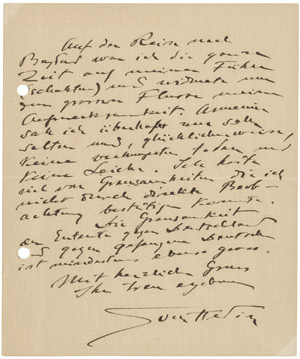 Auf der Reise nach
Bagdad war ich die ganze
Zeit auf meiner Fähre
(schaktur) und widmete nur
dem grossen Flusse meine
Aufmerksamkeit. Armenier
sah ich überhaupt nur sehr
selten und, glücklicherweise,
keine verhungerten Toden und
keine Leiche. Ich hörte
viel von Grausamkeiten die ich
nicht durch direkte Beob-
achtung bestätigen konnte.
Die Grausamkeit
der Entente gegen Deutschland
und gegen gefangene Deutsche
ist mindestens ebenso gross.
Mit herzlichem Gruss
Ihr treu ergebener
Sven Hedin